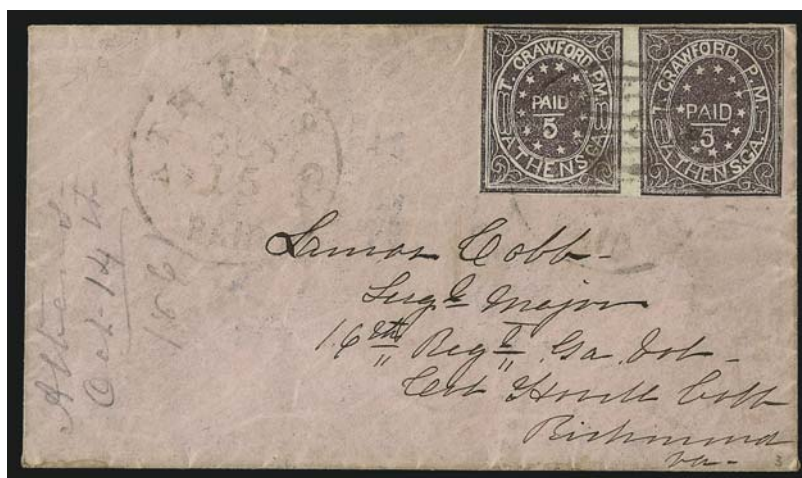 T. CRAWFORD, P.M.
PAID
5
ATHENS GA.
T. CRAWFORD, P.M.
PAID
5
ATHENS, GA.
ATHENS GA
OCT
15
PAID
PAID
Athens
Oct 14th
1861
Lamar Cobb
Sergt Major
16th Regt Ga Vol
Col Howell Cobb
Richmond
Va
3